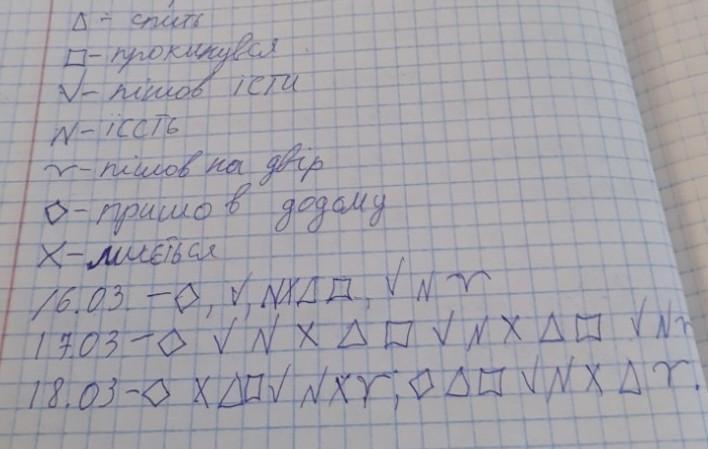 △ - спить
□ - прокинувся
√ - пішов їсти
N - їсть
ɤ - пішов на двір
◇ - прийшов додому
X - миється
16.03. - ◇, √, N X △ □, √ N ɤ
17.03 - ◇ √ N X △ □ √ N X △ □ √ N ɤ
18.03 - ◇ X △ □ √ N X ɤ, ◇ △ □ √ N X △ ɤ.